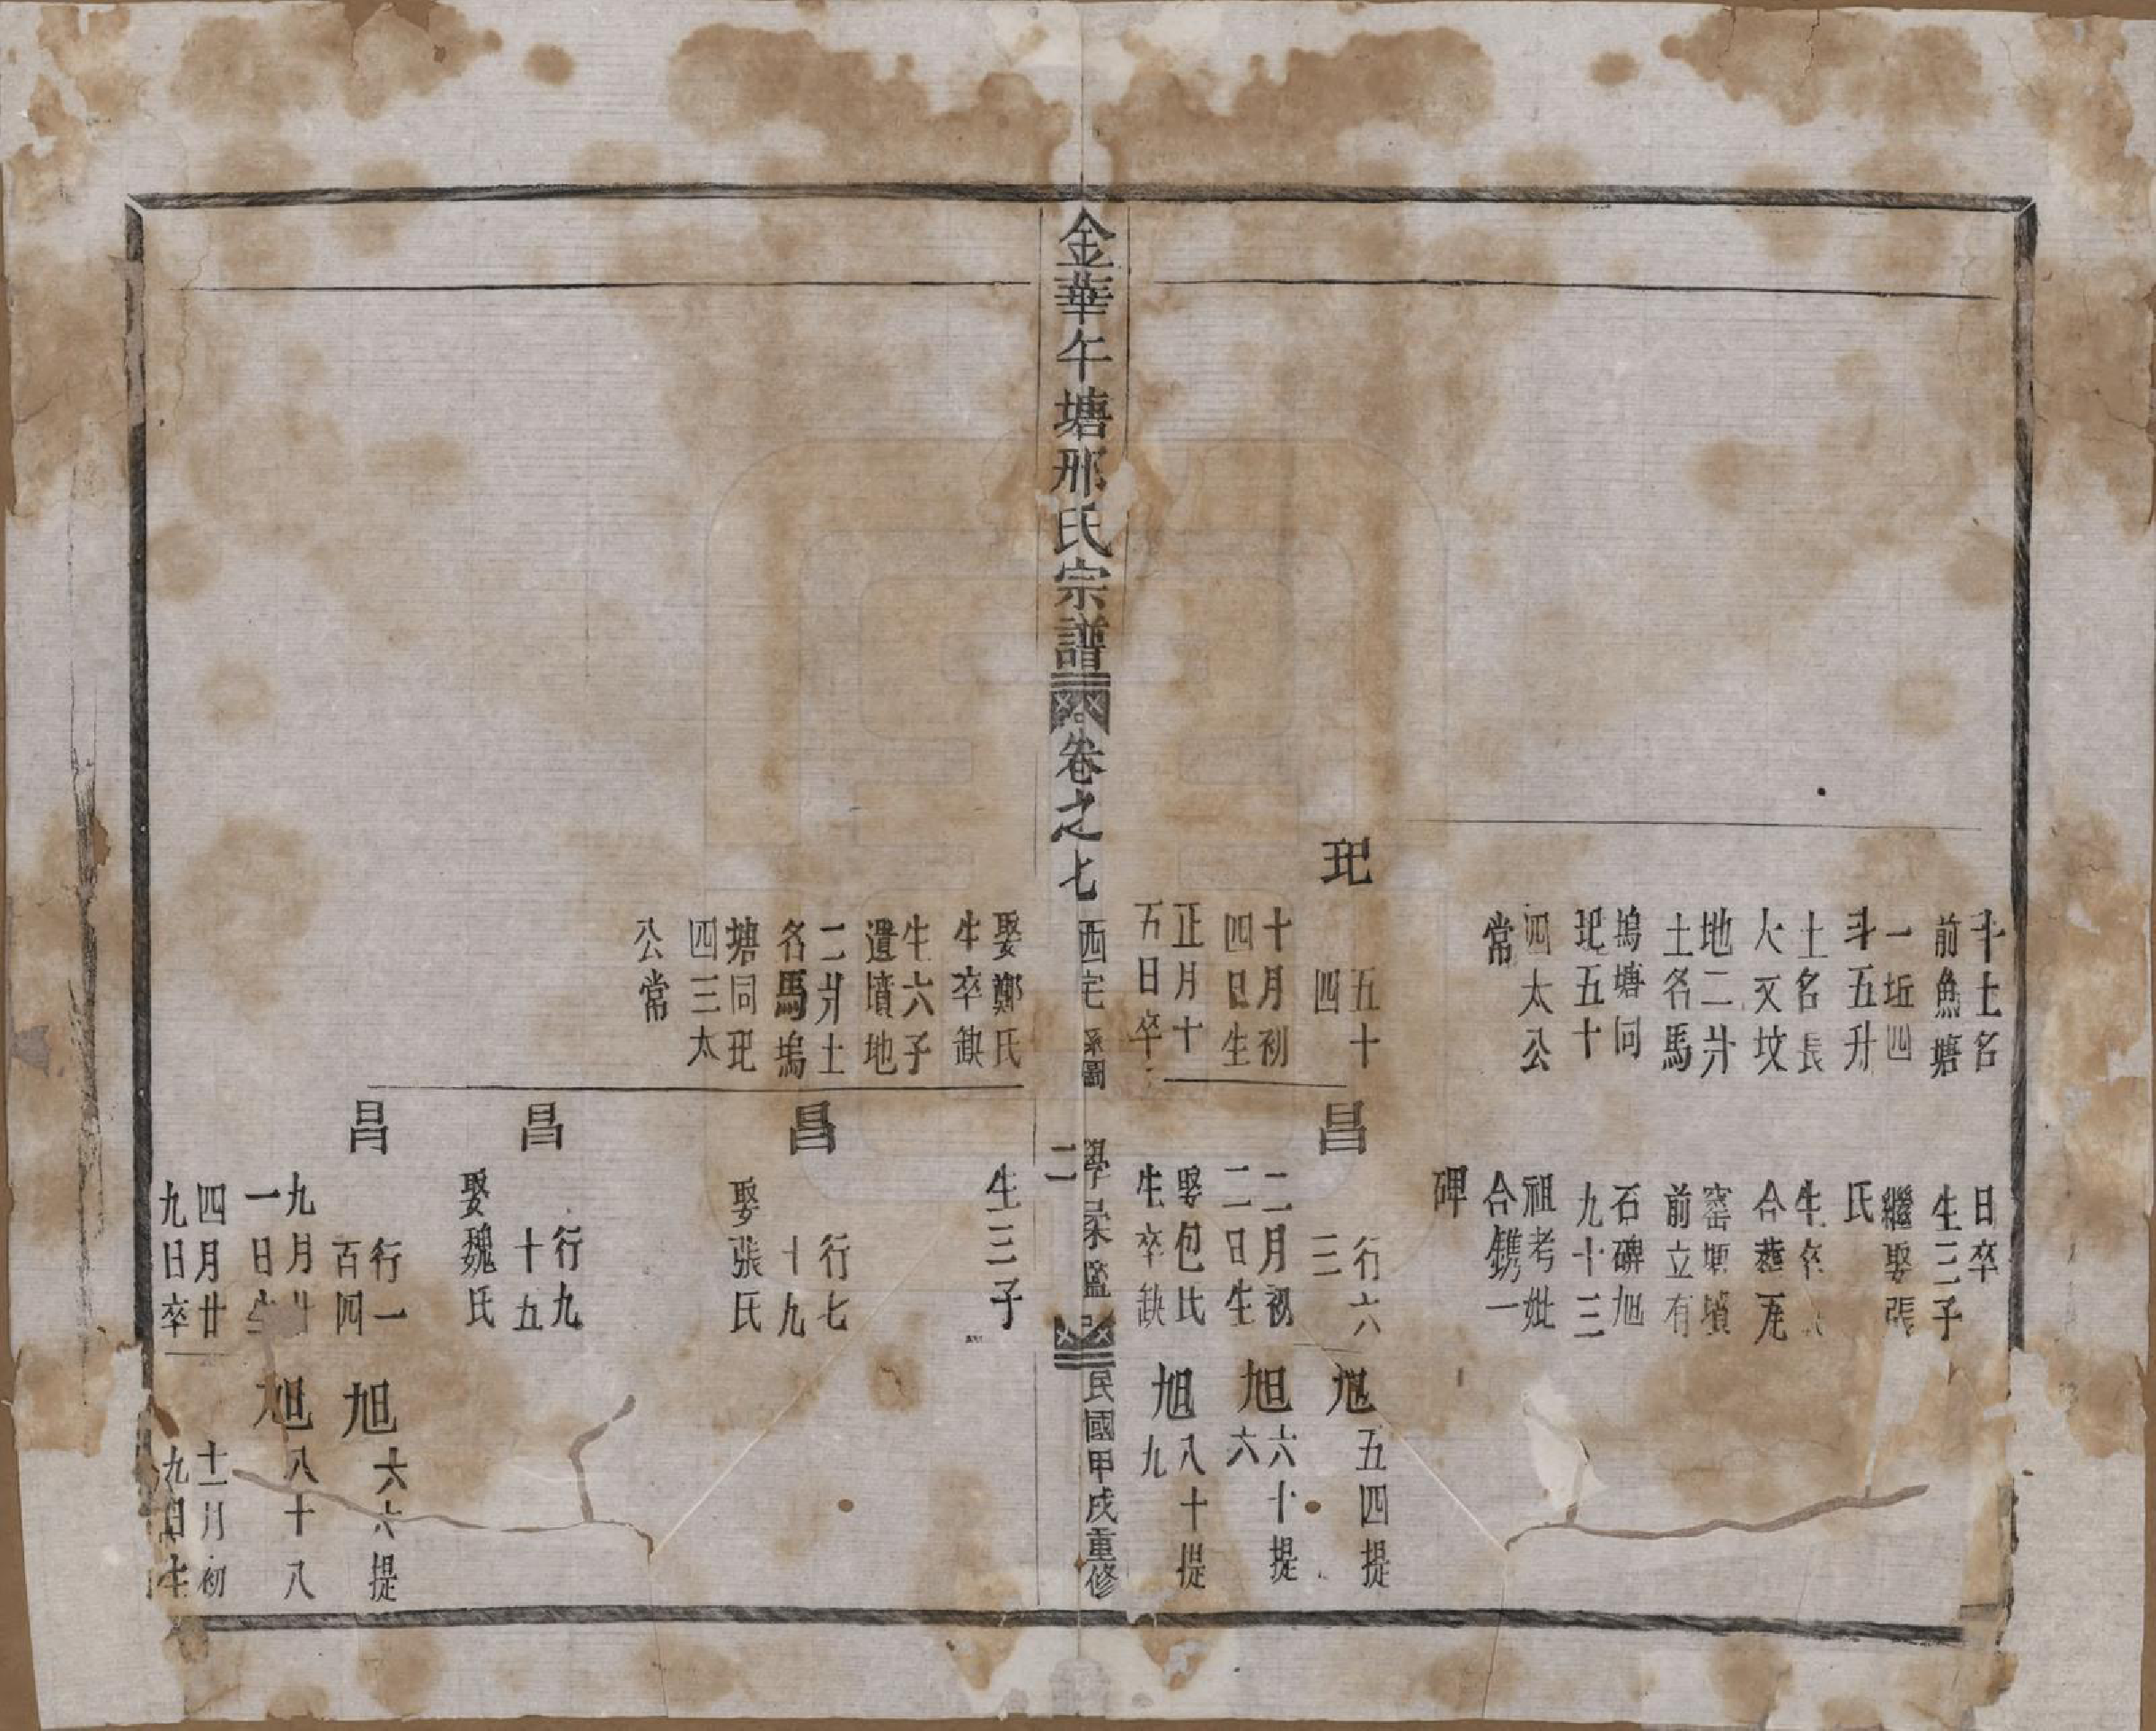 斗土名
前魚塘
一坵四
斗五升
土名長
大又坟
地二升
土名馬
塢塘同
玘五十
四太公
常
日卒
生三子
繼娶張
氏
生卒
合葬
窑塘墳
前立有
石碑旭
九十三
祖考妣
合鐫一
碑
玘
五十
四
十月初
四日生
正月十
五日卒
昌
行六
三
二月初
二日生
娶包氏
生卒缺
旭
五四提
旭
六十提
六
旭
八十提
九
金華午塘邢氏宗譜
卷之七
西宅
系圖
二
民國甲戌重修
娶鄭氏
生卒缺
生六子
遺墳地
二升土
名馬塢
塘同玘
四三太
公常
生三子
昌
行七
十九
娶張氏
昌
行九
十五
娶魏氏
昌
行一
百四
九月廿
一日生
四月廿
九日卒
旭
六六提
旭
八十八
十一月初
九日生